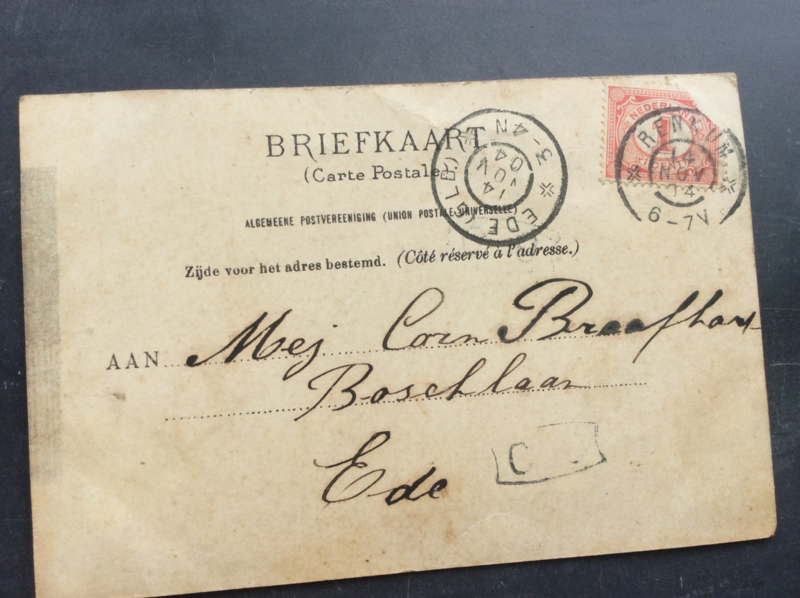 BRIEFKAART
(Carte Postale)
ALGEMEENE POSTVEREENIGING (UNION POSTALE UNIVERSELLE)
Zijde voor het adres bestemd. (Côté réservé à l'adresse.)
AAN Mej Corn Braafhart
Boschlaan
Ede
C
EDE (GLD.)
3-4N
14
NOV
04
NEDERLAND
1
RENKUM
14
NOV
04
6-7V